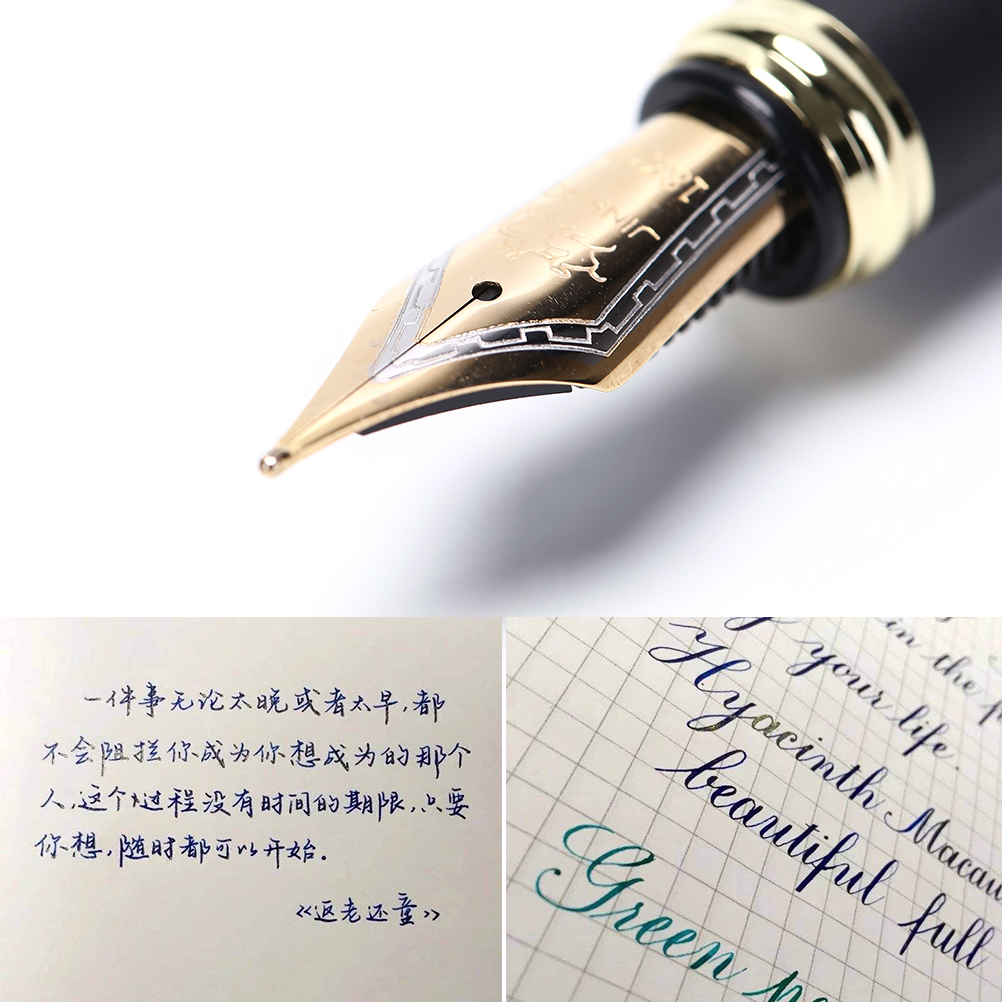 18K
一件事无论太晚或者太早,都
不会阻拦你成为你想成为的那个
人,这个过程没有时间的期限,只要
你想,随时都可以开始。
《返老还童》
in the
your life.
Hyacinth Macaw
beautiful full
Green